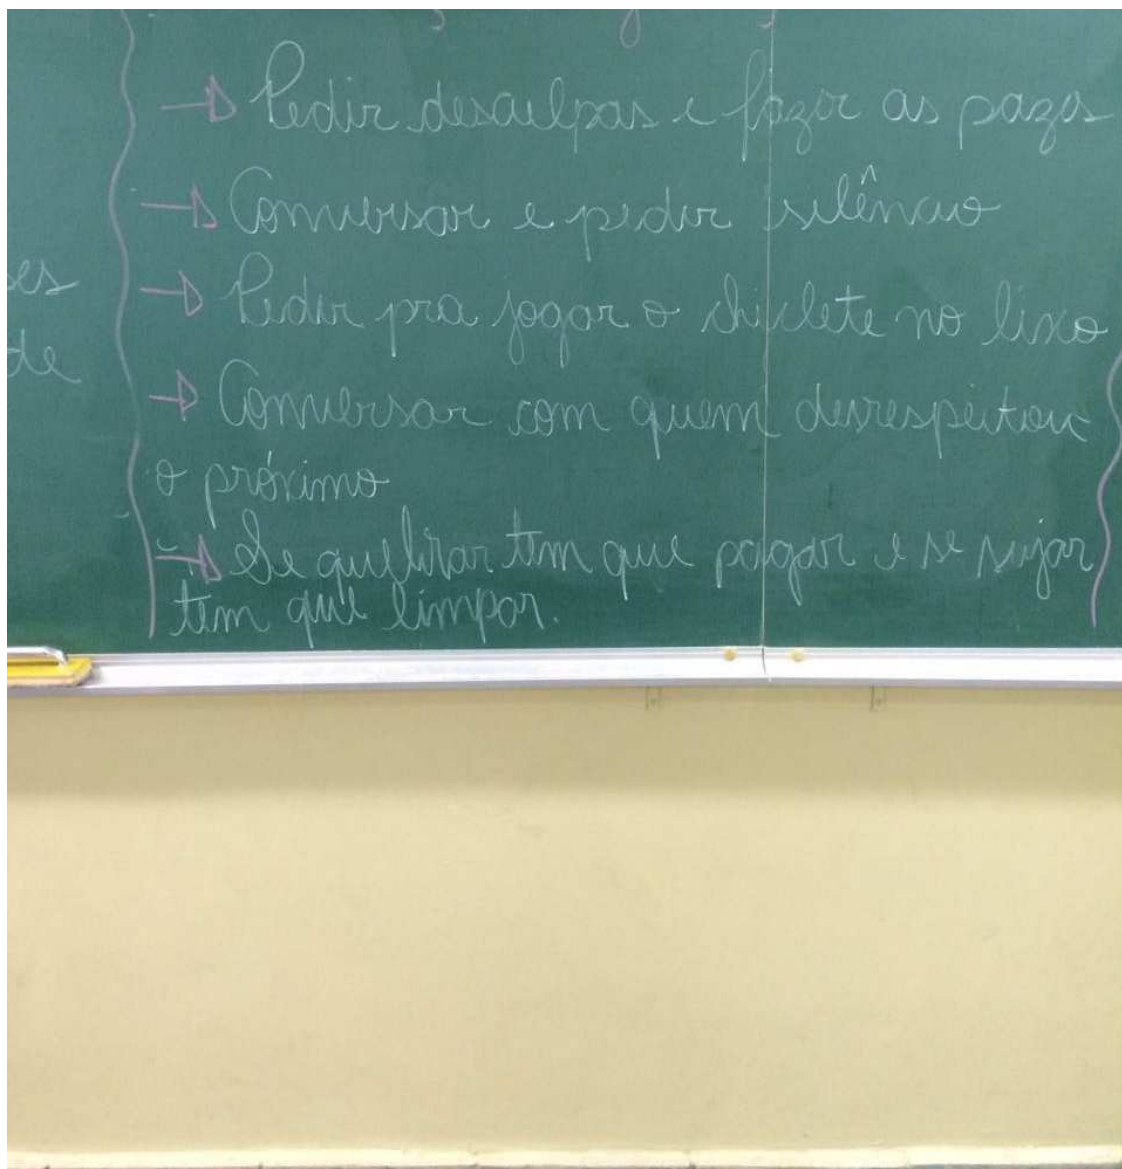 → Pedir desculpas e fazer as pazes
→ Conversar e pedir silêncio
→ Pedir pra jogar o chiclete no lixo
→ Conversar com quem desrespeitou
o próximo
→ Se quebrar tem que pagar e se sujar
tem que limpar.